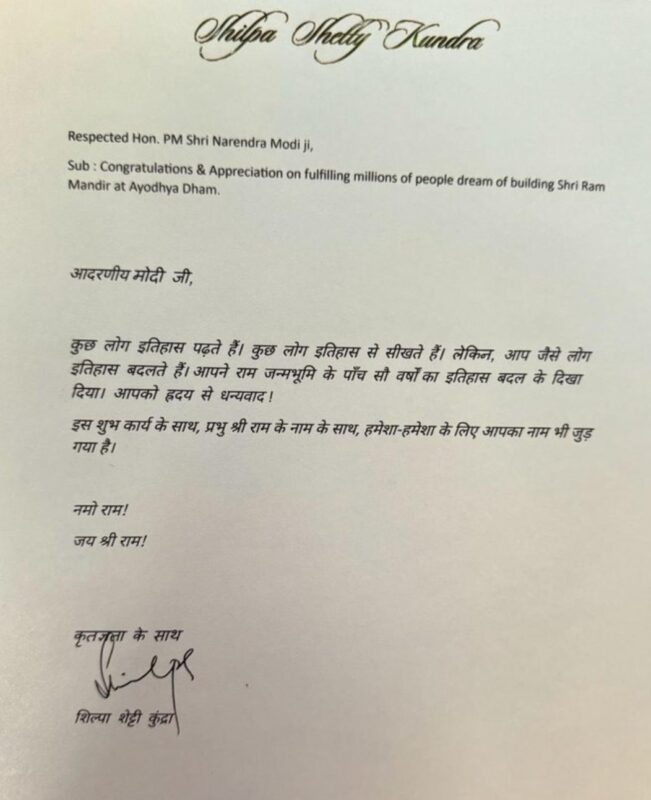 Shilpa Shetty Kundra
Respected Hon. PM Shri Narendra Modi ji,
Sub : Congratulations & Appreciation on fulfilling millions of people dream of building Shri Ram
Mandir at Ayodhya Dham.
आदरणीय मोदी जी,
कुछ लोग इतिहास पढ़ते हैं। कुछ लोग इतिहास से सीखते हैं। लेकिन, आप जैसे लोग
इतिहास बदलते हैं। आपने राम जन्मभूमि के पाँच सौ वर्षों का इतिहास बदल के दिखा
दिया। आपको ह्रदय से धन्यवाद!
इस शुभ कार्य के साथ, प्रभु श्री राम के नाम के साथ, हमेशा-हमेशा के लिए आपका नाम भी जुड़
गया है।
नमो राम!
जय श्री राम!
कृतज्ञता के साथ
शिल्पा शेट्टी कुंद्रा